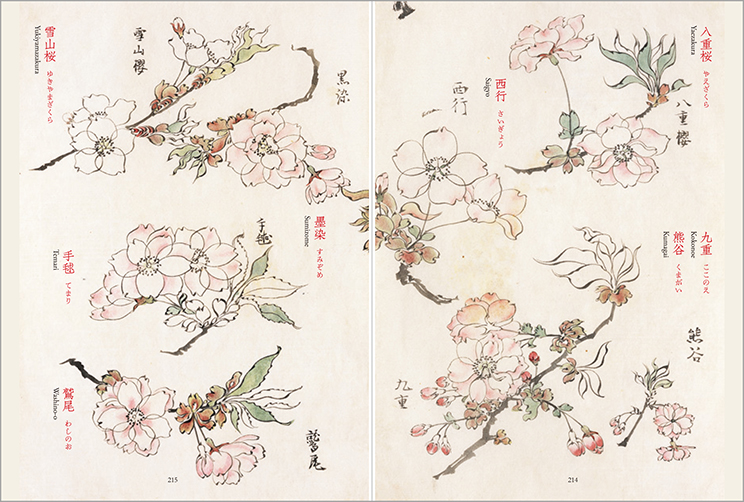 八重桜 やえざくら
Yaezakura
八重櫻
西行 さいぎょう
Saigyo
西行
九重 ここのえ
Kokonoe
熊谷 くまがい
Kumagai
熊谷
九重
214
雪山桜 ゆきやまざくら
Yukiyamazakura
雪山櫻
黒染
墨染 すみぞめ
Sumizome
手毬
手毬 てまり
Temari
鷲尾 わしのお
Washino-o
鷲尾
215